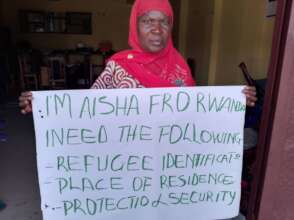 I'M AISHA FRO RWANDA
I NEED THE FOLLOWING
- REFUGEE IDENTIFICAT°
- PLACE OF RESIDENCE
- PROTECTIO & SECURITY